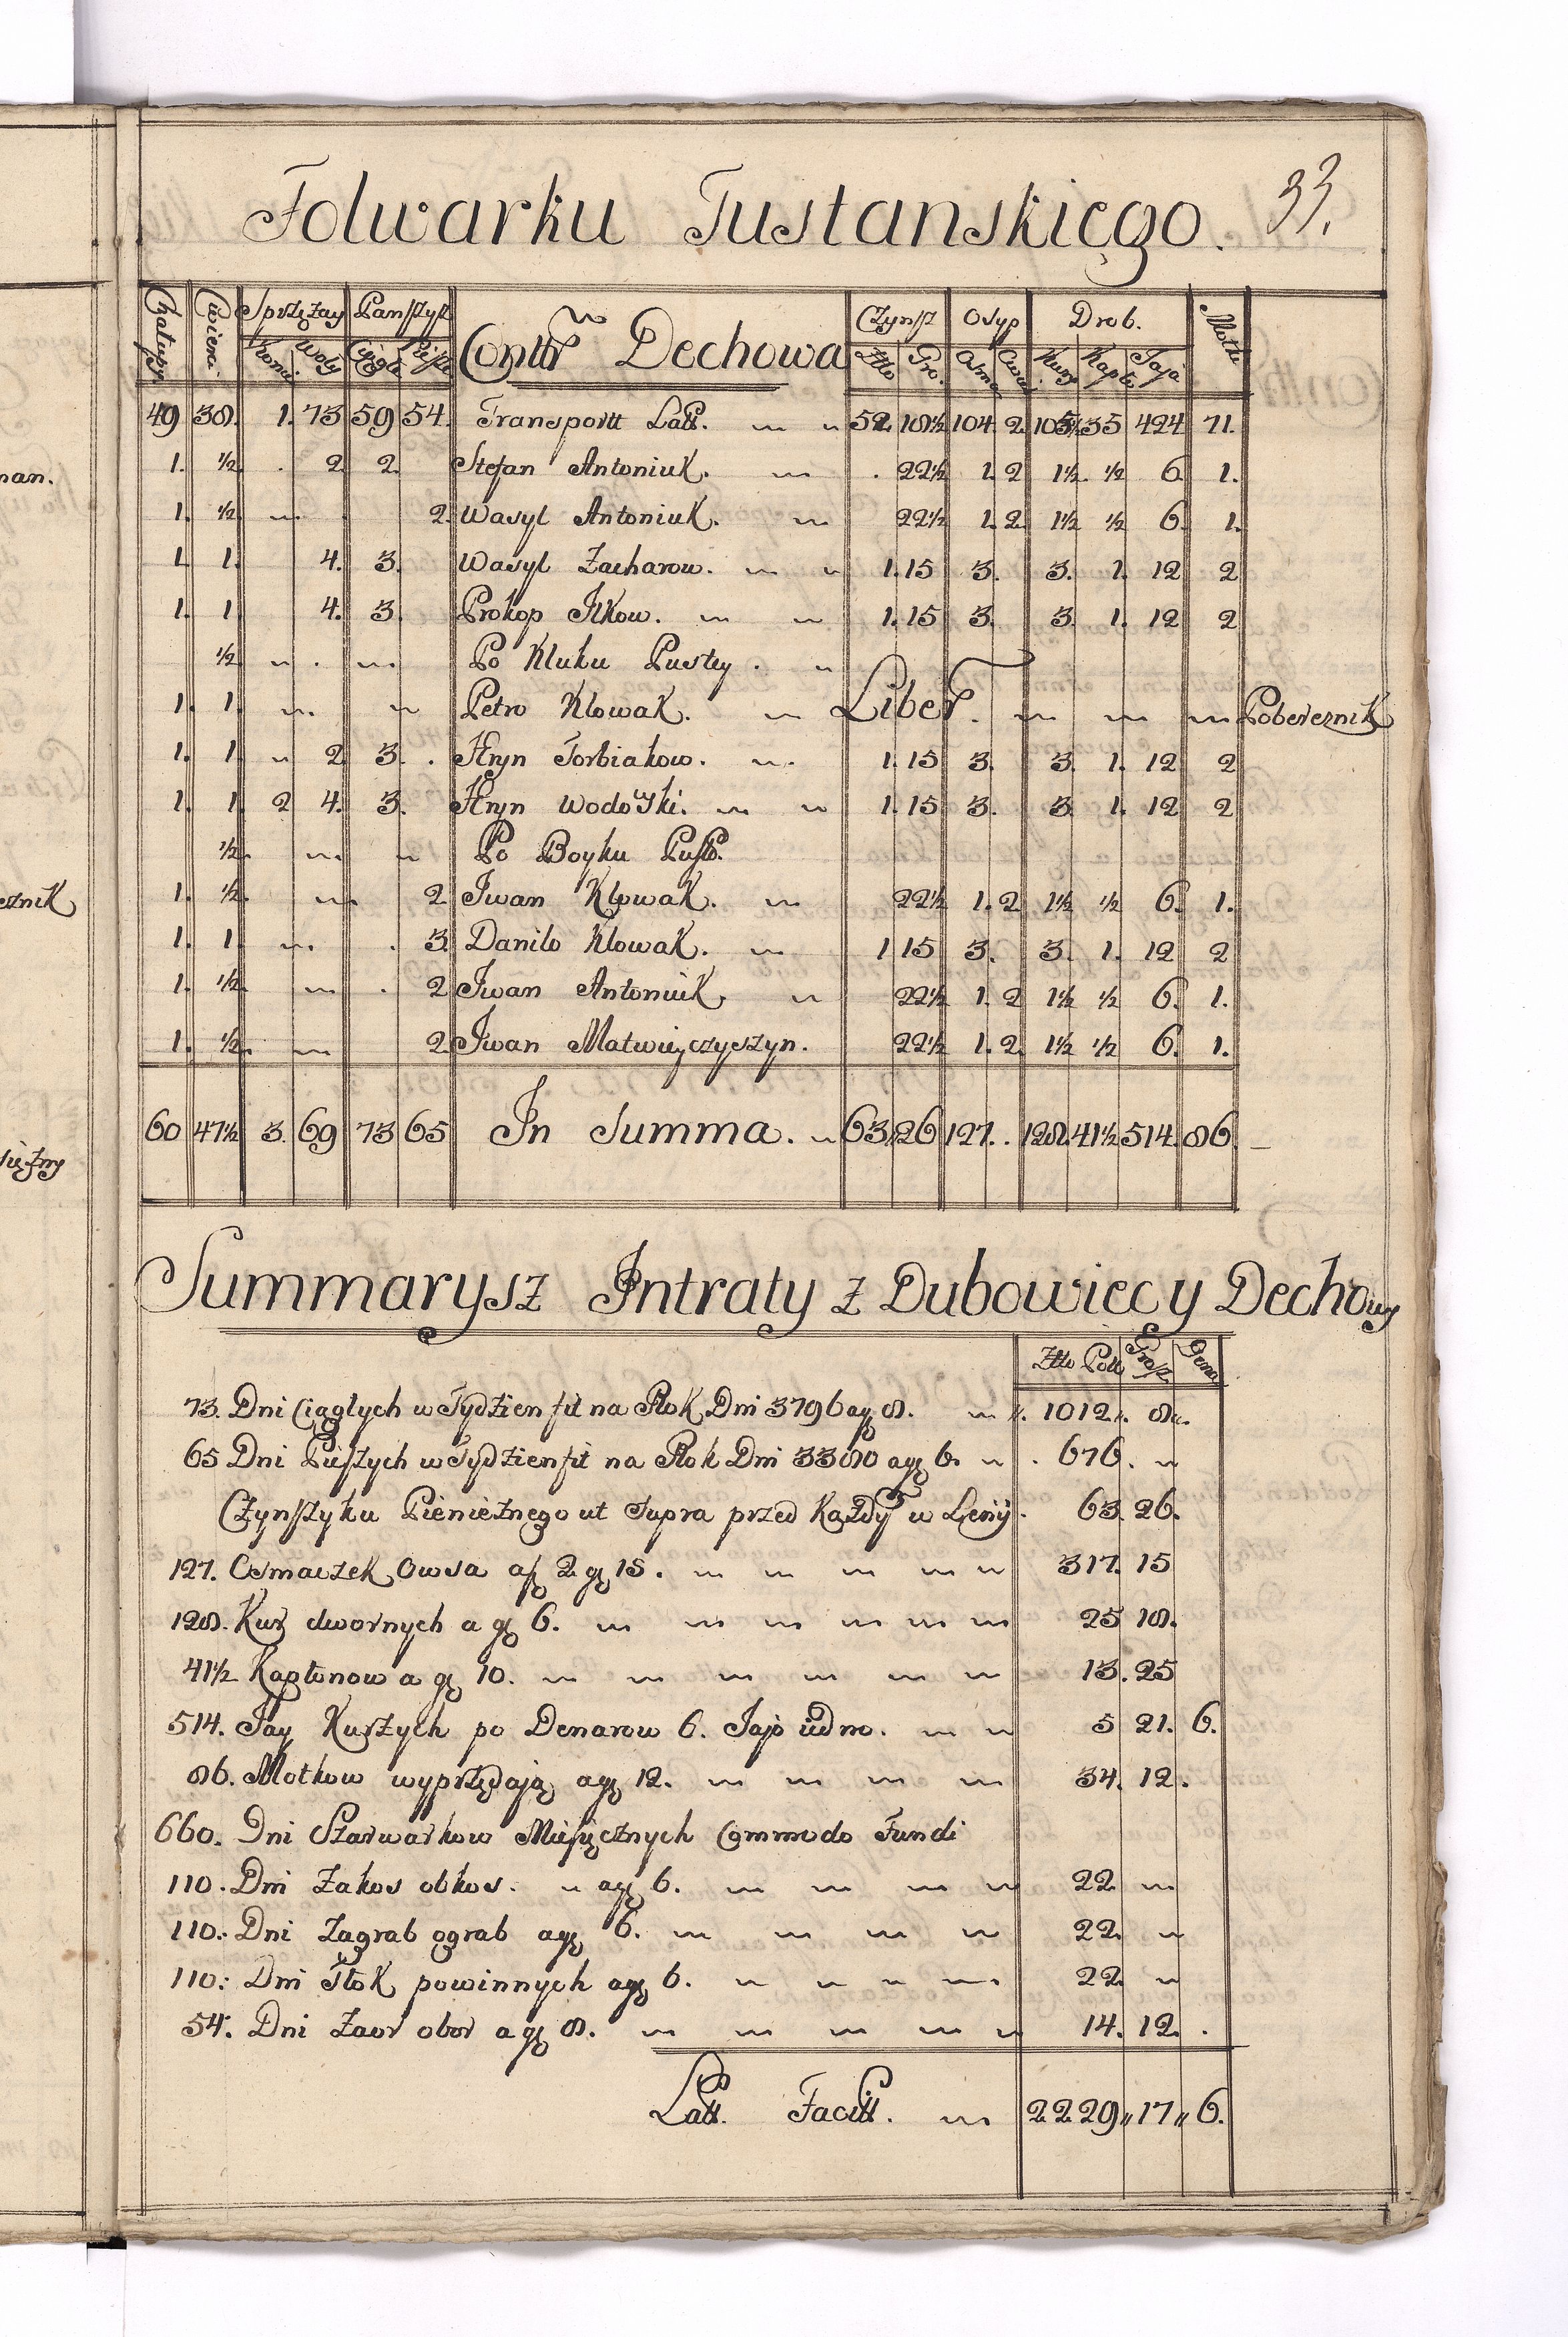 Folwarku Tustanskiego. 33.
Chałupy Cwierci Sprzęzay Panszyz Conttr Dechowa Czynsz Osyp Drob. Motki
Konie Woły Ciągłe Piesze Złło Gro. Osma Cwier Kury Kapło Jaja
49 38. 1. 73 59 54. Transportt Latt. 52. 18½ 104 2. 105½ 35 424 71.
1. ½ . 2 2. Stefan Antoniuk. . 22½ 1. 2 1½ ½ 6. 1.
1. ½ 2. Wasyl Antoniuk. 22½ 1. 2. 1½ ½ 6. 1.
1 1. 4. 3. Wasyl Zacharow. 1. 15 3. 3. 1. 12 2
1. 1 4. 3. Prokop Ilkow. 1. 15 3. 3. 1. 12 2
½ Po Kluku Pustey.
1. 1. Petro Klowak. Liber. Pobereznik
1. 1. 2 3. . Hryn Torbiakow. 1. 15 3. 3. 1. 12 2
1. 1. 2 4. 3. Hryn Wodoyski. 1. 15 3. 3. 1. 12 2
½. Po Boyku Pust.
1. ½. 2. Iwan Klowak. 22½ 1. 2 1½ ½ 6. 1.
1. 1. . 3. Danilo Klowak. 1 15 3. 3. 1. 12 2
1. ½. . 2. Iwan Antoniuk. 22½ 1. 2 1½ ½ 6. 1.
1. ½. 2. Iwan Matwiyczyszyn. 22½ 1. 2. 1½ ½ 6. 1.
60 47½ 3. 69 73 65 In Summa. 63. 26 127. . 128. 41½ 514. 86.
Summarysz Intraty z Dubowiec y Dechowy
Złło Poll Grosz Dena
73. Dni Ciągłych w Tydzien fit na Rok Dni 3796 a gr 8. 1012. 8.
65 Dni Pieszych w Tydzien fit na Rok Dni 3380 a gr 6. 676.
Czynszyku Pienieznego ut Supra przed Kazdy w Lenij. 63. 26.
127. Osmaczek Owsa a f 2 gr 15. 317. 15
128. Kur dwornych a gr 6. 25 18.
41½ Kapłonow a gr 10. 13. 25
514. Jay Kurzych po Denarow 6. Jajo iedno. 5 21. 6.
86. Motkow wyprzędają a gr 12. 34. 12.
660. Dni Szarwarkow Miesięcznych Commodo Fundi
110. Dni Zakos obkos. a gr 6. 22
110. Dni Zagrab ograb a gr 6. 22.
110. Dni Tłok powinnych a gr 6. 22
54. Dni Zaor obor a gr 8. 14. 12. .
Latt. Facitt. 2229,, 17,, 6.